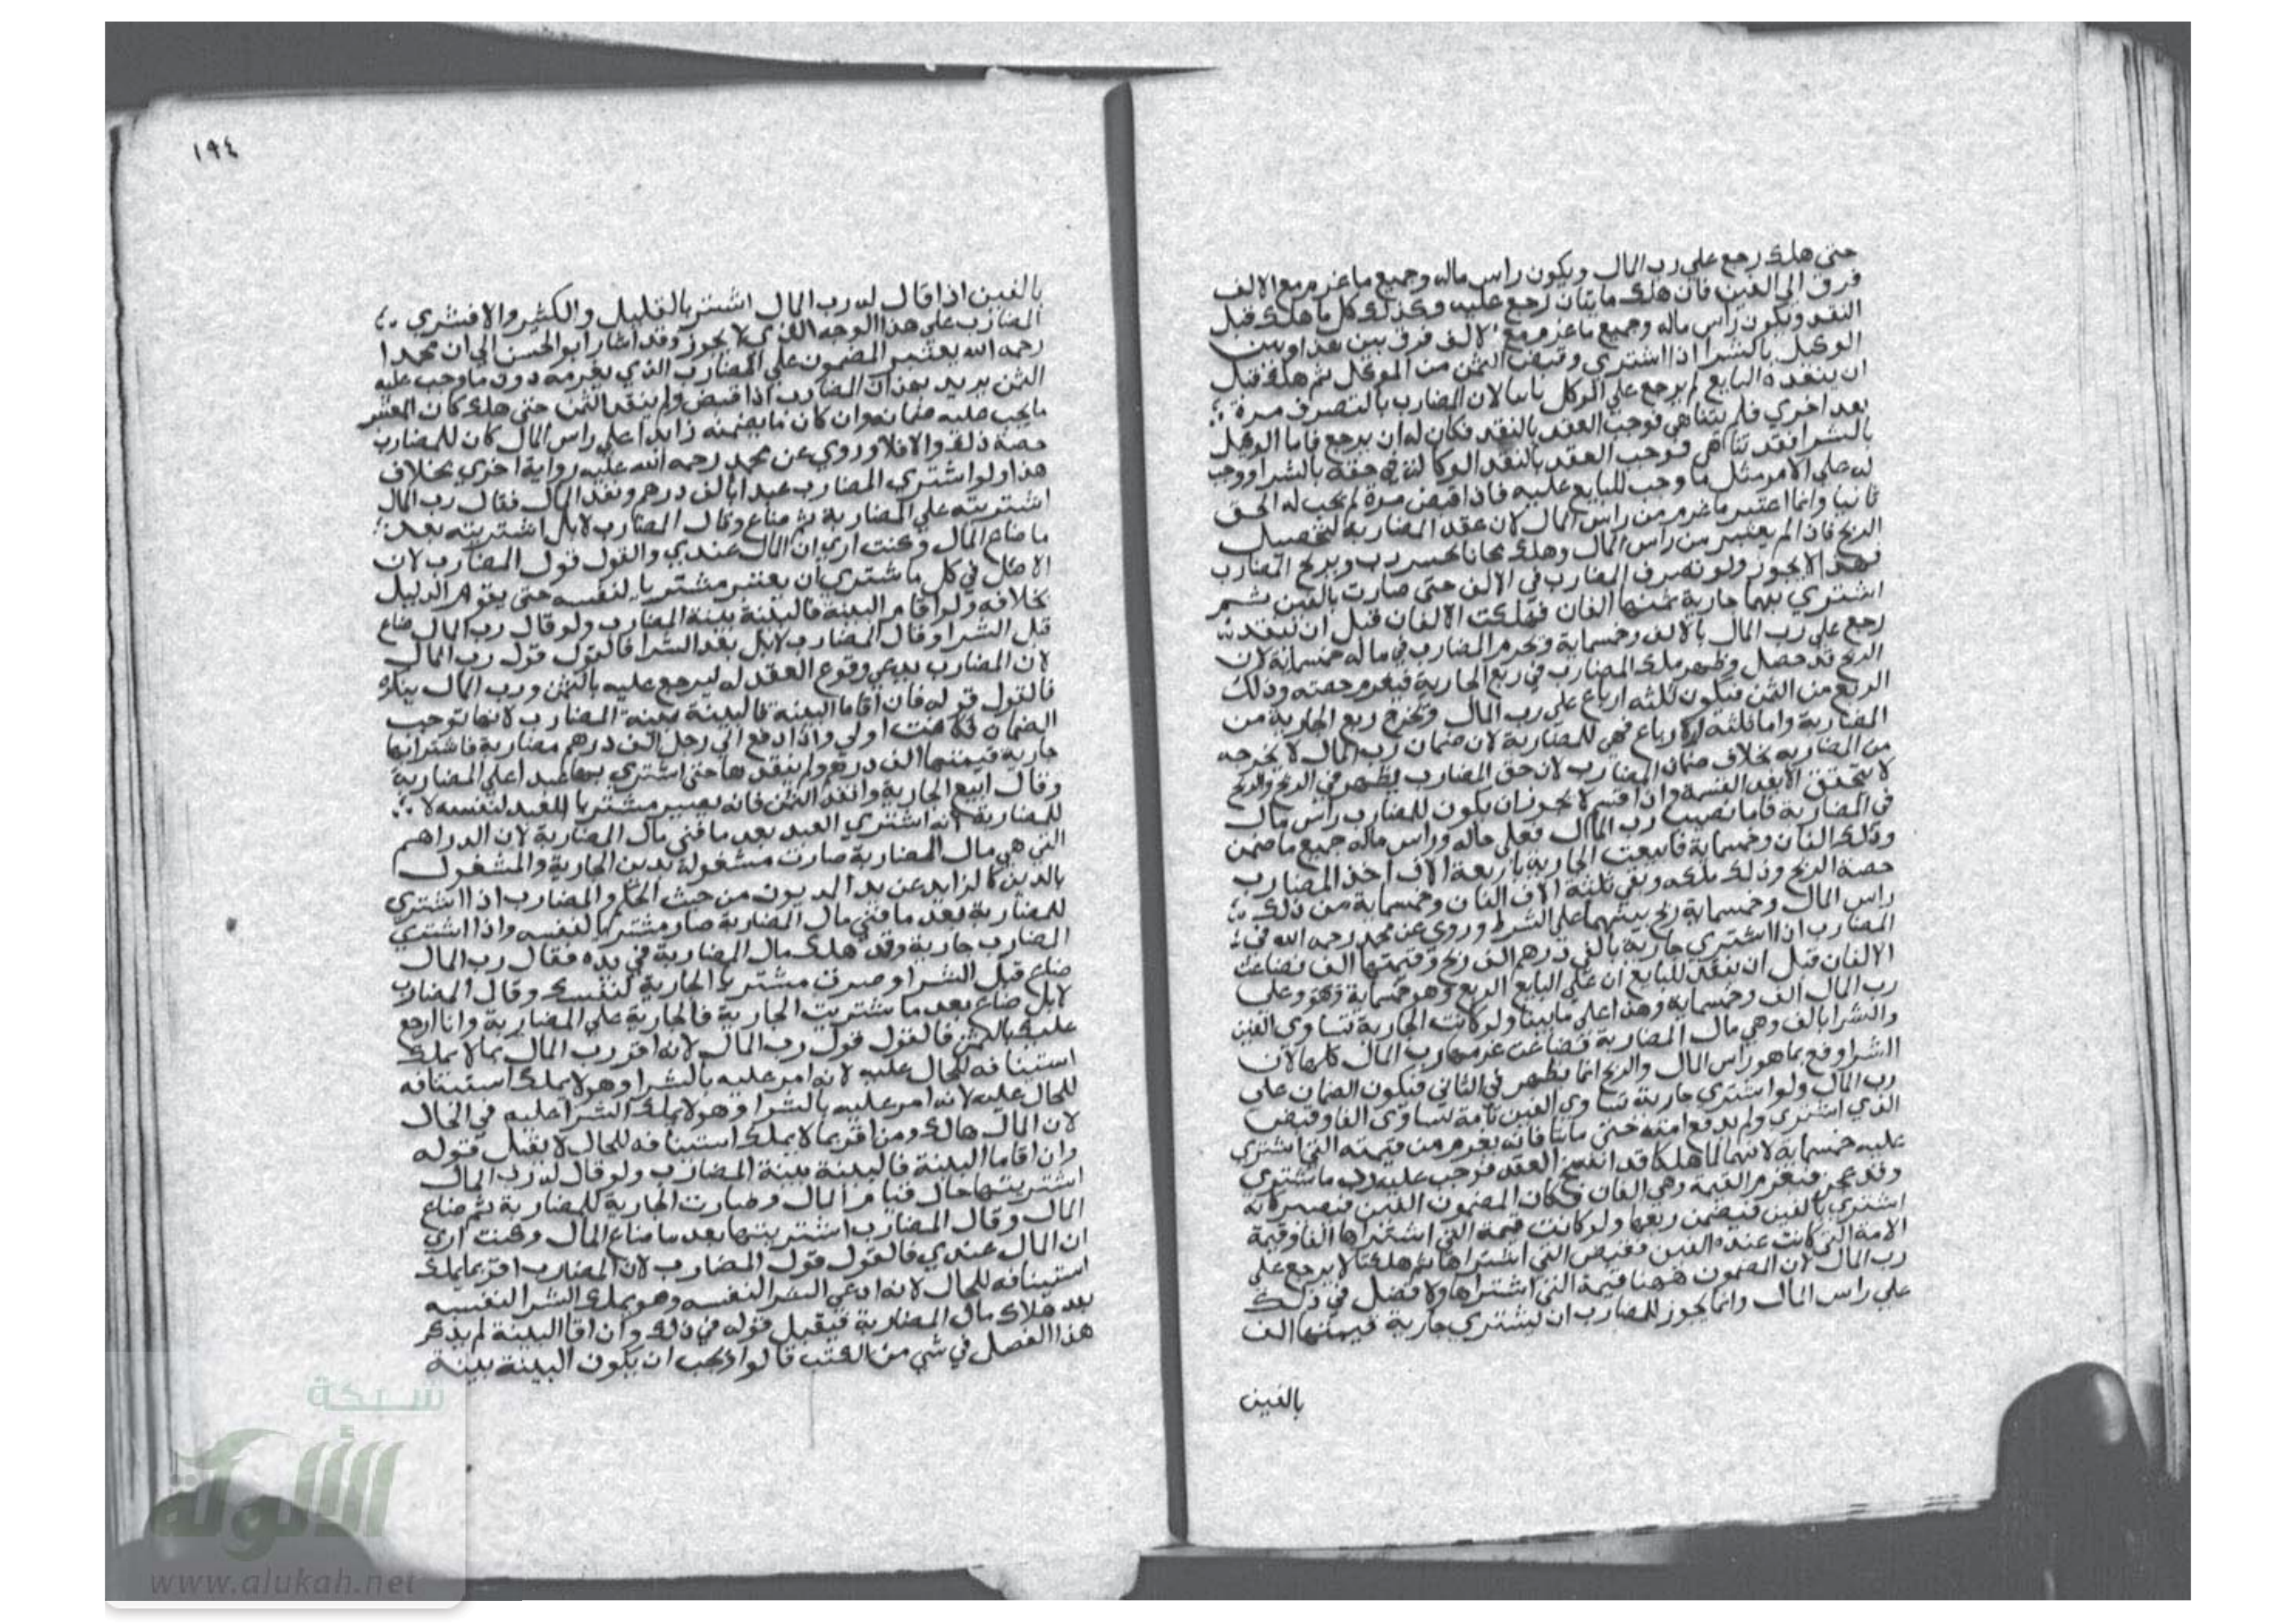 حتى هلك رجع علي رب المال ويكون راس ماله وجميع ما غرم مع الالف
فرق الي الفين فان هلك مايتان رجع عليه وكذلك كل ما هلك قبل
النقد ويكون راس ماله وجميع ما غرم مع الالف فرق بين هذا وبين
الوكيل بالشرا اذا اشتري وقبض الثمن من الموكل ثم هلك قبل
ان ينقده البايع لم يرجع علي الموكل ثانيا لان المضارب بالتصرف مرة
بعد اخري فلم يتناهي فوجب العقد بالنقد فكان له ان يرجع فاما الوكيل
بالشرا فقد تناهي فوجب العقد بالنقد الوكالة في حقه بالشرا ووجب
له علي الامر مثل ما وجب للبايع عليه فاذا قبض مرة لم يجب له الحق
ثانيا وانما اعتبر ما غرم من راس المال لان عقد المضاربة لتحصيل
الربح فاذا لم يعتبر من راس المال وهلك مجانا يخسر رب ويربح المضارب
فهذا لا يجوز ولو تصرف المضارب في الالف حتى صارت بالفين ثم
اشتري بهما جارية ثمنها الفان فهلكت الالفان قبل ان ينقد
رجع علي رب المال بالالف وخمسماية وغرم المضارب في ماله خمسماية لان
الربح قد حصل وظهر ملك المضارب في ربع الجارية فيغرم حصته وذلك
الربع من الثمن فيكون ثلثه ارباع علي رب المال وتخرج ربع الجارية من
المضاربة واما ثلثة الارباع فهي للمضاربة لان ضمان رب المال لا يخرجه
من المضاربه بخلاف ضمان المضارب لان حق المضارب يظهر في الربح والربح
لا يتحقق الا بعد القسمة واذا قسم لا يجوز ان يكون للمضارب راس مال
في المضاربة فاما نصيب رب المال فعلي حاله وراس ماله جميع ما ضمن
وذلك الفان وخمسماية فان بيعت الجارية باربعة الاف اخذ المضارب
حصة الربح وذلك ملكه وبقي ثلثة الاف الفان وخمسماية من ذلك
راس المال وخمسماية ربح بينهما علي الشرط وروي عن محمد رحمه الله في
المضارب اذا اشتري جارية بالفي درهم الف ربح وقيمتها الف فضاعت
الالفان قبل ان ينقد للبايع ان علي البايع الربع وهو خمسماية وعلي
رب المال الف وخمسماية وهذا علي ما بينا ولو كانت الجارية تساوي الفين
والشرا بالف وهي مال المضاربة فضاعت غرمها رب المال كلها لان
الشرا وقع بما هو راس المال والربح انما يظهر في الثاني فيكون الضمان علي
رب المال ولو اشتري جارية تساوي الفين بامة تساوي الفا وقبض
الذي اشتري ولم يدفع امته حتى ماتتا فانه يغرم من قيمته التي اشتري
عليه خمسماية لانهما لما هلكا قد انفسخ العقد فوجب عليه رد ما اشتري
وقد عجز فيغرم القيمة وهي الفان فكان المضمون الفين فيصير كانه
اشتري بالفين فيضمن ربعها ولو كانت قيمة التي اشتراها الفا وقيمة
الامة التي كانت عنده الفين فقبض التي اشتراها ثم هلكتا لا يرجع علي
رب المال لان المضمون ههنا قيمة التي اشتراها ولا فضل في ذلك
علي راس المال وانما يجوز للمضارب ان يشتري جارية قيمتها الف
بالفين
١٩٤
بالفين اذا قال له رب المال اشتر بالقليل والكثير والا فشري
المضارب علي هذا الوجه الذي لا يجوز وقد اشار ابو الحسن الي ان محمدا
رحمه الله يعتبر المضمون علي المضارب الذي يغرمه دون ما وجب عليه
الثمن يريد بهذا ان المضارب اذا قبض ولم ينقد الثمن حتى هلك كان المعتبر
ما يجب عليه ضمانه وان كان ما يضمنه زايدا علي راس المال كان للمضارب
حصة ذلك والا فلا وروي عن محمد رحمه الله عليه رواية اخري بخلاف
هذا ولو اشتري المضارب عبدا بالف درهم ونقد المال فقال رب المال
اشتريته علي المضاربة ثم ضاع وقال المضارب لا بل اشتريته بعد
ما ضاع المال وكنت اري ان المال عندي والقول قول المضارب لان
الاصل في كل ما شتري ان يعتبر مشتريا لنفسه حتى يقوم الدليل
بخلافه ولو اقام البينة فالبينة بينة المضارب ولو قال رب المال ضاع
قبل الشرا وقال المضارب لا بل بعد الشرا فالقول قول رب المال
لان المضارب يدعي وقوع العقد له ليرجع عليه بالثمن ورب المال ينكر
فالقول قوله فان اقاما البينة فالبينة بينة المضارب لانها توجب
الضمان فكانت اولي واذا دفع الي رجل الف درهم مضاربة فاشترا بها
جارية قيمتها الف درهم ولم ينقدها حتى اشتري بها عبدا علي المضاربة
وقال ابيع الجارية وانقد الثمن فانه يصير مشتريا للعبد لنفسه لا
للمضاربة لانه اشتري العبد بعد ما فني مال المضاربة لان الدراهم
التي هي مال المضاربة صارت مشغولة بدين الجارية والمشغول
بالدين كالزايد عن يد المديون من حيث الحكم والمضارب اذا اشتري
للمضاربة بعد ما فني مال المضاربة صار مشتريا لنفسه واذا اشتري
المضارب جارية وقد هلك مال المضاربة في يده فقال رب المال
ضاع قبل الشرا وصرت مشتريا الجارية لنفسك وقال المضارب
لا بل ضاع بعد ما شتريت الجارية فالجارية علي المضاربة وانا ارجع
عليك بالثمن فالقول قول رب المال لانه اقر رب المال بما لا يملك
استينافه للحال عليه لانه امر عليه بالشرا وهو لا يملك استينافه
للحال عليه لانه امر عليه بالشرا وهو لا يملك الشرا عليه في الحال
لان المال هالك ومن اقر بما لا يملك استينافه للحال لا يقبل قوله
وان اقاما البينة فالبينة بينة المضارب ولو قال له رب المال
اشتريتها حال قيام المال وصارت الجارية للمضاربة ثم ضاع
المال وقال المضارب اشتريتها بعد ما ضاع المال وكنت اري
ان المال عندي فالقول قول المضارب لان المضارب اقر بما يملك
استينافه للحال لانه ادعي الشرا لنفسه وهو يملك الشرا لنفسه
بعد هلاك مال المضاربة فيقبل قوله في ذلك وان اقاما البينة لم يذكر
هذا الفصل في شي من الكتب قالوا ويجب ان يكون البينة بينة
شبكة
الألوكة
www.alukah.net